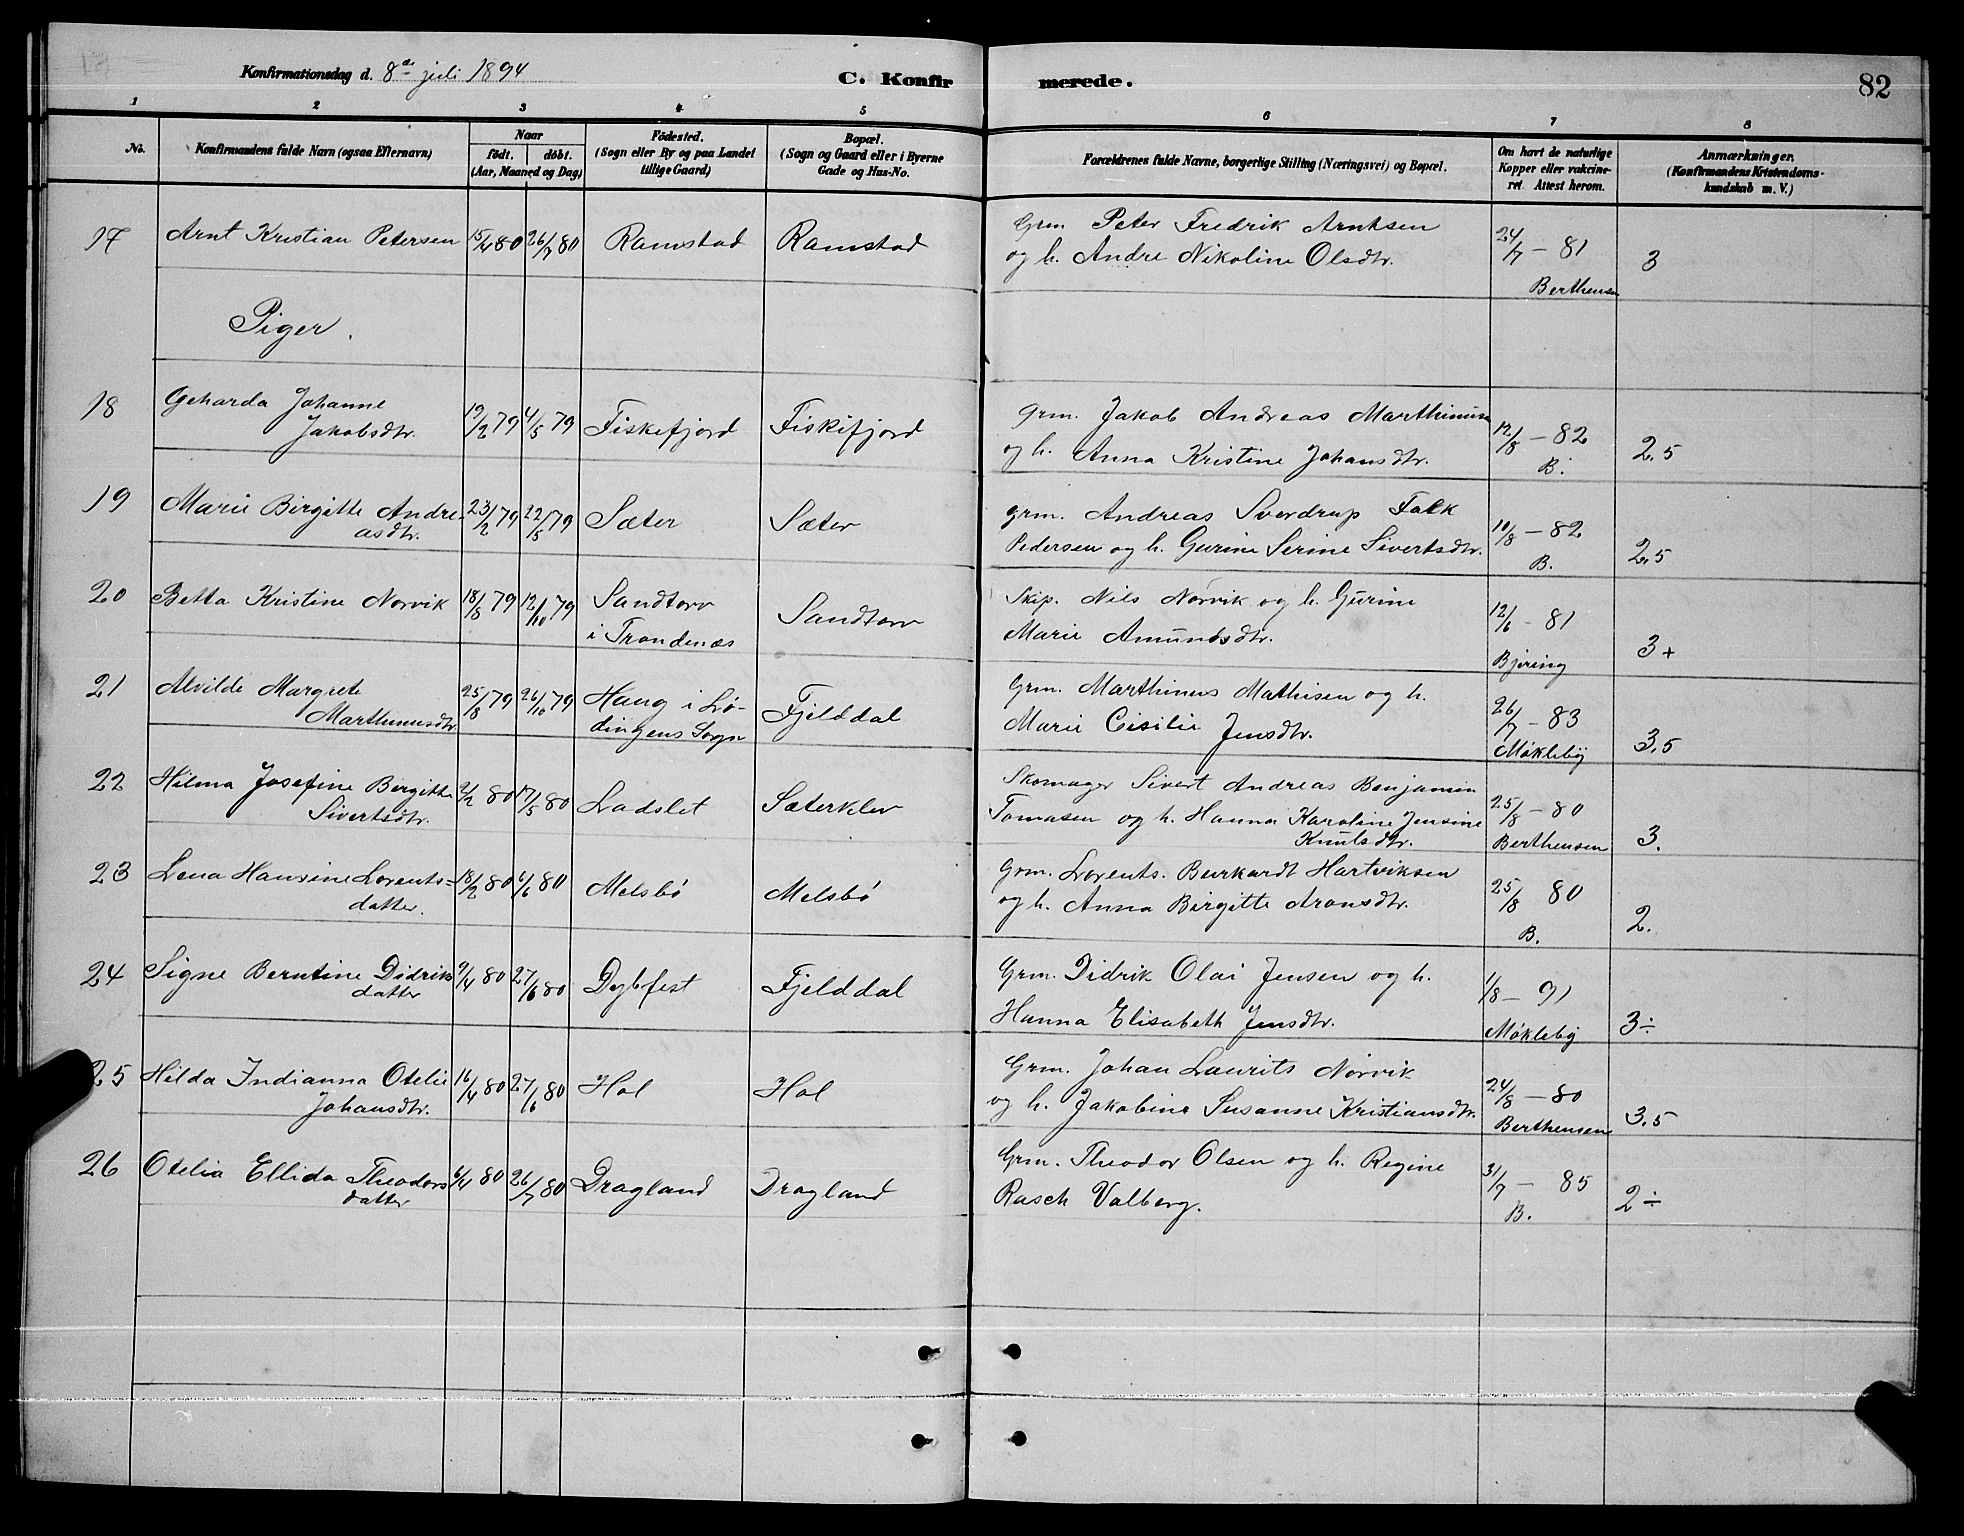 Konfirmationsdag d. 8de juli 1894 C. Konfirmerede. 82
1 2 3 4 5 6 7 8
No. Konfirmandens fulde Navn (ogsaa Efternavn) Naar født. døbt. (Aar, Maaned og Dag) Fødested. (Sogn eller By og paa Landet tillige Gaard) Bopæl. (Sogn og Gaard eller i Byerne Gade og Hus-No. Forældrenes fulde Navne, borgerlige Stilling (Næringsvei) og Bopæl. Om havt de naturlige Kopper eller vakcineret. Attest herom. Anmærkninger. (Konfirmandens Kristendomskundskab m. V.)
17 Arnt Kristian Petersen 15/4 80 26/7 80 Ramstad Ramstad Grm. Peter Fredrik Arntsen 24/7 - 81 3
og h. Andre Nikoline Olsdtr. Berthensen
Piger.
18 Geharda Johanne 19/2 79 4/5 79 Fiskefjord Fiskefjord Grm. Jakob Andreas Marthinusen 12/8 - 82 2,5
Jakobsdtr. og h. Anna Kristine Johansdtr. B.
19 Marie Birgitte Andre- 23/2 79 22/5 79 Sæter Sæter grm. Andreas Sverdrup Falk 10/8 - 82 2,5
asdtr. Pedersen og h. Gurine Serine Sivertsdtr. B.
20 Betta Kristine Norvik 18/8 79 12/10 79 Sandtorv Sandtorv Skip. Nils Norvik og h. Gurine 12/6 - 81 3+
i Trondenæs Marie Amundsdtr. Bjøring
21 Alvilde Margrete 25/8 79 26/10 79 Haug i Lø- Fjelddal Grm. Marthinus Mathisen og h. 26/7 - 83 3,5
Marthinusdtr. dingens Sogn Marie Cisilie Jensdtr. Møkleby
22 Hilma Josefine Birgitte 2/2 80 17/5 80 Ladslet Sæterklev Skomager Sivert Andreas Benjamin 25/8 - 80 3.
Sivertsdtr. Tomasen og h. Hanna Karoline Jensine Berthensen
Knutsdtr.
23 Lena Hansine Lorents= 18/2 80 6/6 80 Melsbø Melsbø Grm. Lorents. Burkardt Hartviksen 25/8 80 2.
datter. og h. Anna Birgitte Aronsdtr. B.
24 Signe Berntine Didriks 9/4 80 27/6 80 Dybfest Fjelddal Grm. Didrik Olai Jensen og h. 1/8 - 91 3÷
datter Hanna Elisabeth Jensdtr. Møkleby
25 Hilda Indianna Otelie 16/4 80 27/6 80 Hol Hol Grm. Johan Laurits Norvik 24/8 - 80 3,5
Johansdtr. og h. Jakobine Susanne Kristiansdtr. Berthensen
26 Otelia Ellida Theodors 6/4 80 26/7 80 Dragland Dragland Grm. Theodor Olsen og h. Regine 31/7 - 85 2÷
datter Rasch Valberg. B.